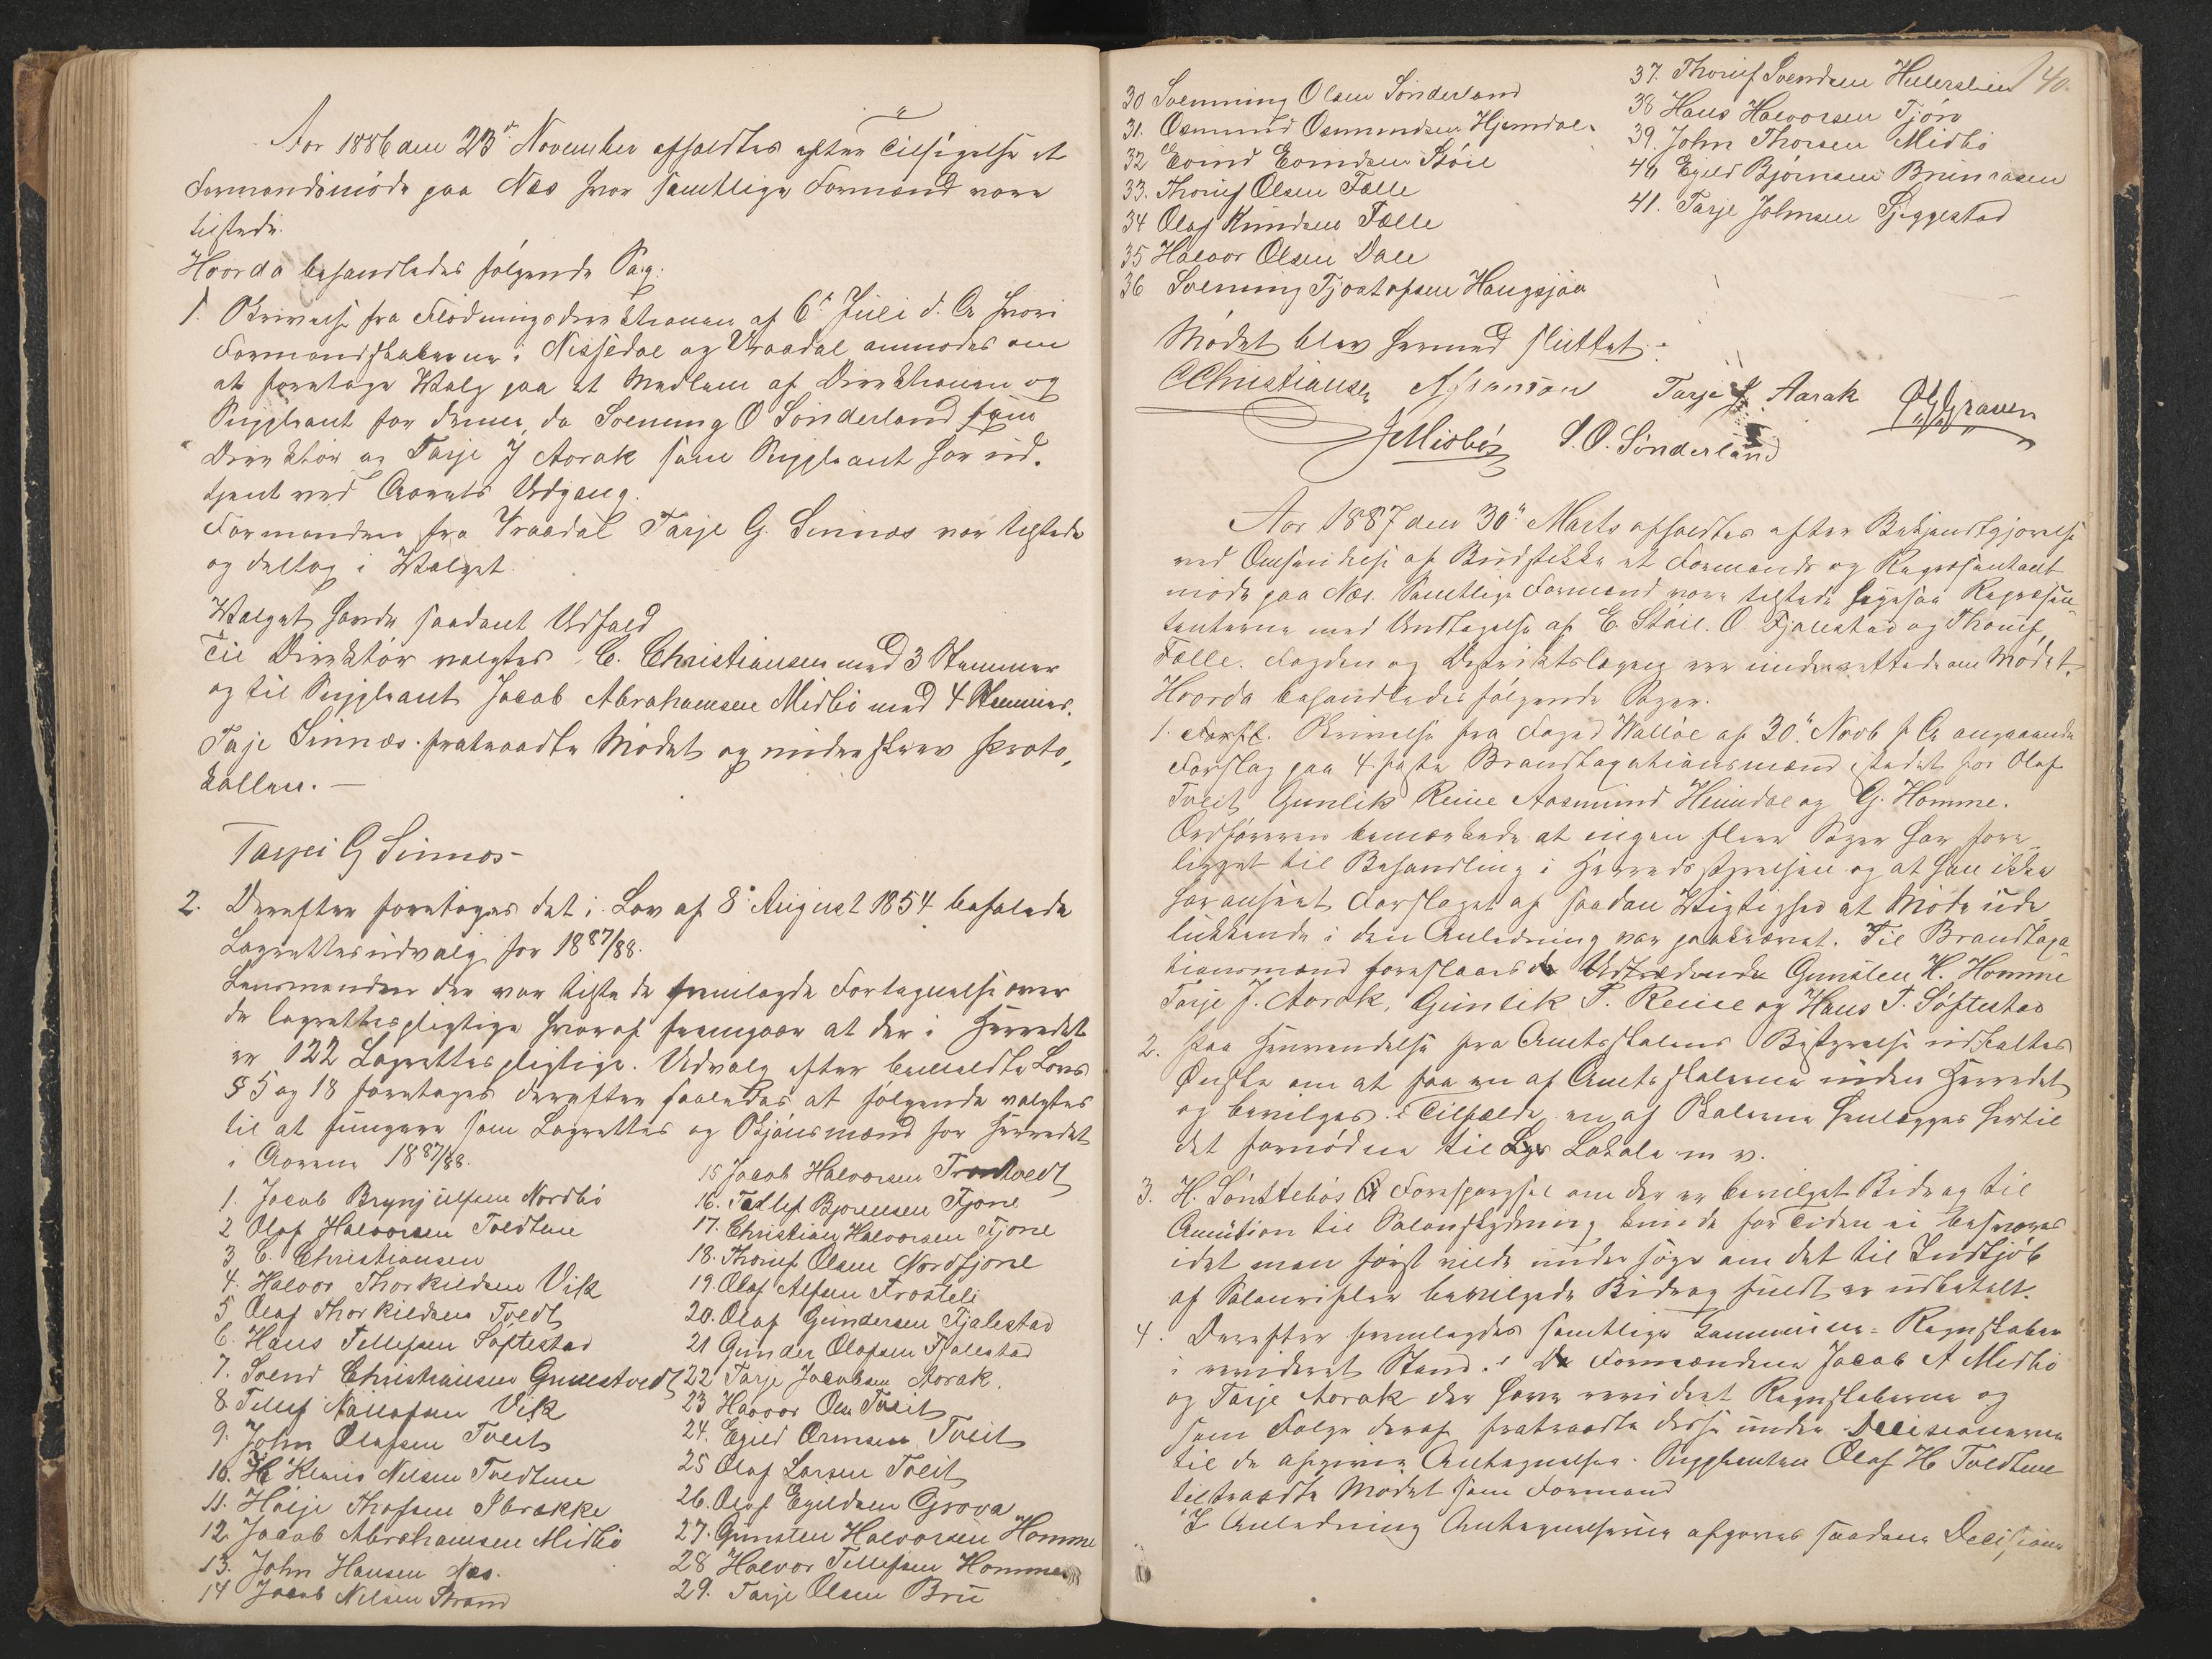 Aar 1886 den 23de November afholdtes efter Tilsigelse et
Formandsmöde paa Næs hvor samtlige Formænd vare
tilstede.
Hvorda behandledes fölgende Sag:
1. Skrivelse fra Flödningsdirektionen af 6te Juli d. A. hvori
Formandskaberne i Nissedal og Vraadal anmodes om
at foretage Valg paa et Medlem af Direktionen og
Suppleant for denne, da Svenung O Sönderland som
Direktör og Tarje J Aarak som Suppleant har ud-
tjent ved Aarets Udgang.
Formanden fra Vraadal Tarje G. Sinnæs var tilstede
og deltog i Valget.
Valget havde saadant Udfald
Til Direktör valgtes C. Christiansen med 3 Stemmer
og til Suppleant Jacob Abrahamsen Midbö med 4 Stemmer.
Taje Sinnæs fratraadte Mödet og underskrev Proto-
kollen. —
Tarjei G Sinnes
2. Derefter foretoges det i Lov af 8de August 1854 befalede
Lagrettesudvalg for 1887/88.
Lensmanden der var tilstede fremlagde Fortegnelse over
de lagrettespligtige hvoraf fremgaar at der i Herredet
er 122 Lagrettespligtige. Udvalg efter bemeldte Lovs
§ 5 og 18 foretoges derefter saaledes at fölgende valgtes
til at fungere som Lagrettes og Skjönsmænd for Herredet
i Aarene 1887/88.
1. Jacob Brynjulfsen Nordbö
2 Olaf Halvorsen Tvedtene
3 C. Christiansen
4. Halvor Thorkildsen Vik
5 Olaf Thorkildsen Tvedt
6. Hans Tellefsen Söftestad
7. Svend Christiansen Gunnestvedt
8 Tellef Vik
9. John Olafsen Tveit
10. Nilsen Tvedtene
11. Thofsen
12 Jacob Abrahamsen Midbö
13. John Hansen Næs.
14 Jacob Nilsen Strand
15 Jacob Halvorsen Trontvedt
16. Tallef Bjornsen Fjone
17. Christian Halvorsen Fjone
18. Thorief Olsen Nordfjone
19. Olaf Alfsen Frosteli
20. Olaf Gundersen Fjalestad
21 Gunder Olafsen Fjalestad
22 Tarje Jacobsen Aarak.
23 Halvor Ols. Tveit
24. Egild Ormsen Tveit
25 Olaf Larsen Tveit
26. Olaf Egildsen Grova
27. Gunsten Halvorsen Homme
28 Halvor Tellefsen Homme
29. Tarje Olsen Bru
140.
30 Svenning Olsen Sönderland
31. Osmund Osmundsen Hjemdal
32 Evind Evindsen Stöil
33. Thorief Olsen Fælle
34 Olaf Knudsen Fælle
35 Halvor Olsen Dale
36 Svenning Tjostofsen Haugsjaa
37. Thorief Svendsen
38 Hans Halvorsen Tjörn
39. John Thorsen Midbö
40 Egild Björnsen
41. Tarje Johnsen Sjeggestad
Mödet blev hermed sluttet.
CChristiansen Tarje J. Aarak
JAMidbö S. O. Sönderland
Aar 1887 den 30te Marts afholdtes efter Bekjendtgjörelse
ved Omsendelse af Budstikke et Formands og Repræsentant
möde paa Næs. Samtlige Formænd vare tilstede ligesaa Repræsen-
tanterne med Undtagelse af E. Stöil. O. Fjalestad og Thorief
Fælle. Fogden og Distriktslægen var underrettede om Mödet.
Hvorda behandledes fölgende Sager.
1. Skrivelse fra Foged Wallöe af 30te Novb f. A. angaaende
Forslag paa 4 faste Brandtaxationsmænd istedet for Olaf
Tveit Gunlik Reine Aasmund Heimdal og G. Homme.
Ordföreren bemærkede at ingen flere Sager har fore-
ligget til Behandling i Herredsstyrelsen og at han ikke
har anseet Forslaget af saadan Vigtighed at Möde ude-
lukkende i den Anledning var paakrævet. Til Brandtaxa-
tionsmænd foreslaaes de Udtrædende Gunsten H. Homme
Tarje J. Aarak, Gunlik T. Reine og Hans T. Söftestad
2. Paa Henvendelse fra Amtsskolens Bestyrelse udtaltes
Önske om at faa en af Amtsskolerne inden Herredet
og bevilges i Tilfælde en af Skolerne henlægges hertil
det fornödne til Lokale m. v.
3. H. Forespörgsel om der er bevilget Bidrag til
Amution til Salonskydning kunde for Tiden ei besvares
idet man först vilde undersöge om det til Indkjöb
af Salonrifler bevilgede Bidrag fuldt er udbetalt.
4. Derefter fremlagdes samtlige Kommune-Regnskaber
i revideret Stand. Formændene Jacob A Midbö
og Tarje Aarak der havde revideret Regnskaberne og
som Fölge deraf fratraadte disse under Decisionerne
til de afgivne Antegnelser. Suppleanten Olaf H. Tvedtene
tiltraadte Mödet som Formand
I Anledning Antegnelserne afgaves saadanne Decisioner